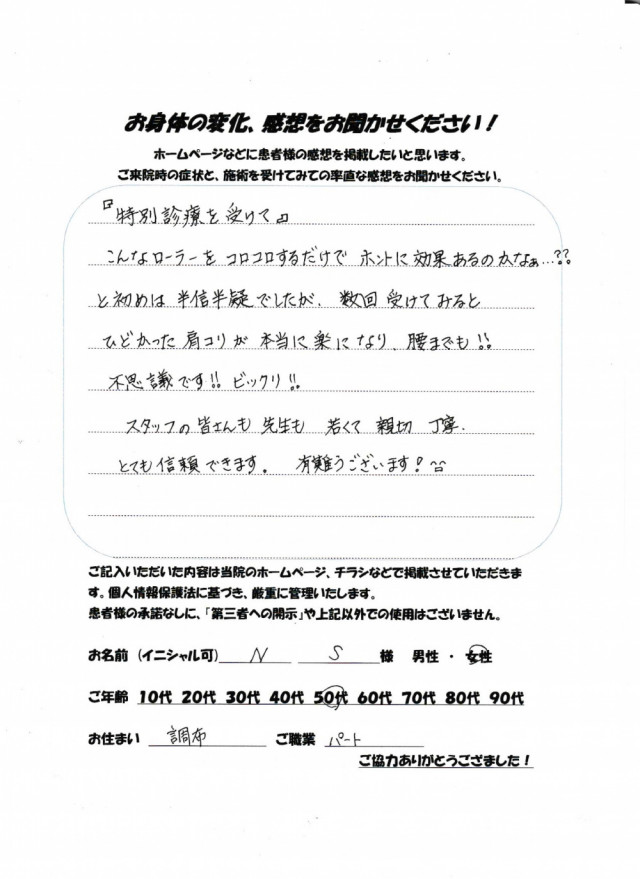 お身体の変化、感想をお聞かせください！
ホームページなどに患者様の感想を掲載したいと思います。
ご来院時の症状と、施術を受けてみての率直な感想をお聞かせください。
『特別診療を受けて』
こんなローラーを コロコロするだけで ホントに 効果あるのかなぁ…??
と初めは 半信半疑でしたが、数回 受けてみると
ひどかった 肩コリが 本当に楽になり、腰までも!!
不思議です!! ビックリ!!
スタッフの 皆さんも 先生も 若くて 親切 丁寧.
とても信頼できます。 有難うございます!
ご記入いただいた内容は当院のホームページ、チラシなどで掲載させていただきま
す。個人情報保護法に基づき、厳重に管理いたします。
患者様の承諾なしに、「第三者への開示」や上記以外での使用はございません。
お名前（イニシャル可） N S 様 男性 ・ 女性
ご年齢 10代 20代 30代 40代 50代 60代 70代 80代 90代
お住まい 調布 ご職業 パート
ご協力ありがとうござました！